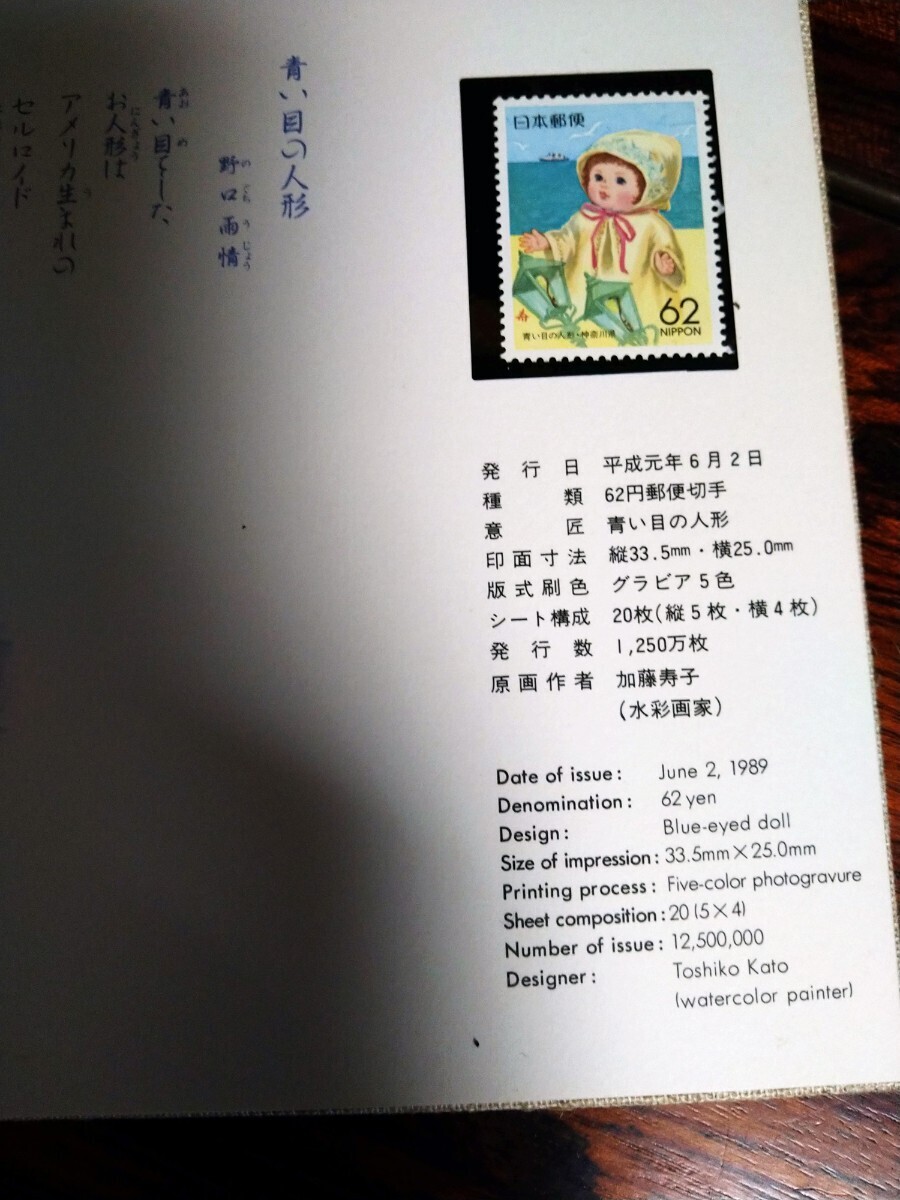 青い目の人形
野口雨情
のぐちうじょう
青い目をした
あおめ
お人形は
にんぎょう
アメリカ生まれの
う
セルロイド
日本郵便
62
NIPPON
青い目の人形・神奈川県
発行日 平成元年6月2日
種類 62円郵便切手
意匠 青い目の人形
印面寸法 縦33.5mm・横25.0mm
版式刷色 グラビア5色
シート構成 20枚(縦5枚・横4枚)
発行数 1,250万枚
原画作者 加藤寿子
(水彩画家)
Date of issue: June 2, 1989
Denomination: 62 yen
Design: Blue-eyed doll
Size of impression: 33.5mm×25.0mm
Printing process: Five-color photogravure
Sheet composition: 20 (5×4)
Number of issue: 12,500,000
Designer: Toshiko Kato
(watercolor painter)